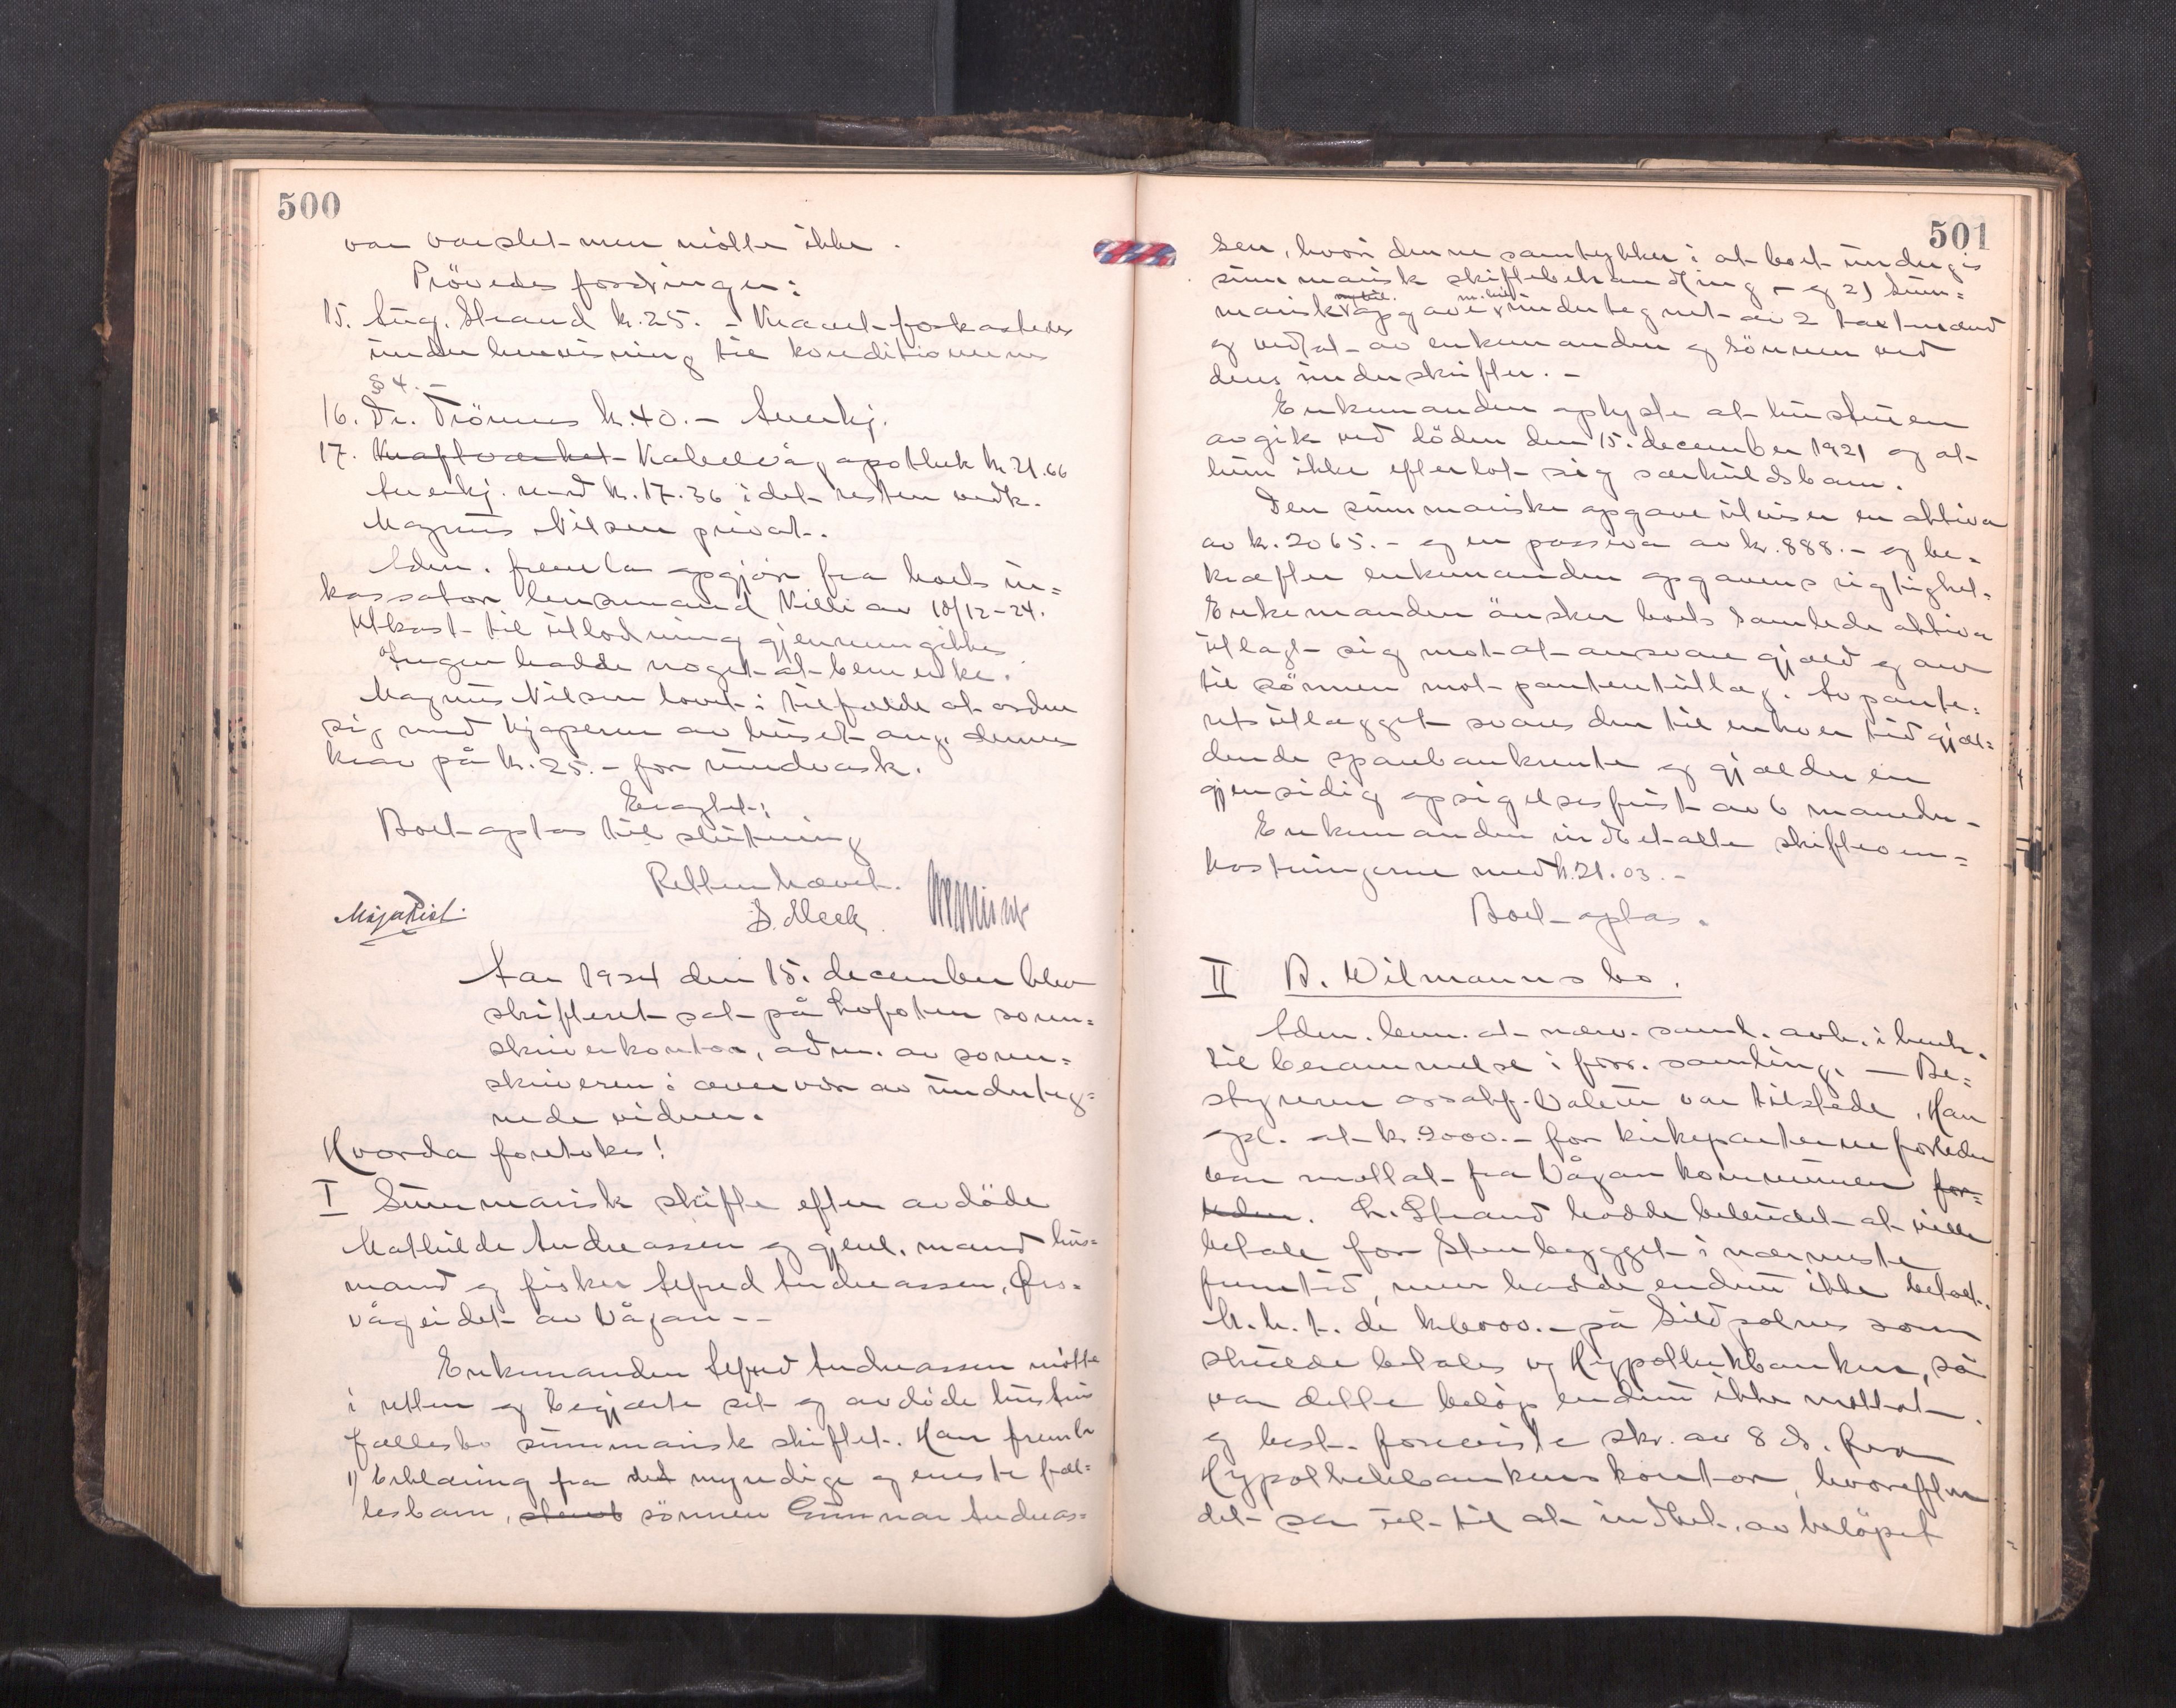 500
var varslet men mötte ikke.
Prövedes fordringer:
15. Aug. Strand kr. 25. - Kravet forkastedes
under henvisning til konditionerne
§ 4. -
16. Dr. Trönnes kr. 40. - Anerkj.
17. Kraftverket Kabelvåg apothek kr. 21.66
Anerkj. med kr. 17.36 idet resten vedk.
Magnus Nilsen privat.
Adm. fremla opgjör fra boets in=
kassator lensmand Killi av 10/12-24.
Utkast til utlodning gjennemgikkes.
Ingen hadde noget at bemerke.
Magnus Nilsen lovet i tilfælde at ordne
sig med kjöperen av huset ang. dennes
krav på kr. 25. - for rundvask.
Eragtet:
Boet optas til slutning
Retten hævet.
D. Meek.
Aar 1924 den 15. december blev
skifteret sat på Lofoten soren=
skriverkontor, adm. av soren=
skriveren i overvær av underteg=
nede vidner.
Hvorda foretokes!
I Summarisk skifte efter avdöde
Mathilde Andreassen og gjenl. mand hus=
mand og fisker Alfred Andreassen, Örs=
vågeidet av Vågan --
Enkemanden Alfred Andreassen mötte
i retten og begjærte sit og avdöde hustru
fællesbo summarisk skiftet. Han fremla
1) Erklæring fra det myndige og eneste fæl=
lesbarn, sönnen Gunnar Andreas=
501
sen, hvori denne samtykker i at boet undergis
summarisk skiftebehandling - og 2) Sum=
marisk opgave undertegnet av 2 takstmænd
og vedtat av enkemanden og sönnen ved
deres underskrifter. -
Enkemanden oplyste at hustruen
avgik ved döden den 15. december 1921 og at
hun ikke efterlot sig særkuldsbarn.
Den summariske opgave utviser en aktiva
av kr. 2065. - og en passiva av kr. 888. - og be=
kræfter enkemanden opgavens rigtighet.
Enkemanden önsker boets samlede aktiva
utlagt sig mot at ansvare gjæld og arv
til sönnen mot panteutlæg. Av pante=
utslægget svares den til enhver tid gjæl=
dende sparebankrente og gjælder en
gjensidig opsigelsesfrist av 6 maneder -
Enkemanden indbetalte skifteom=
kostningerne med kr. 21.03. -
Boet optas.
II B. Wilmanns bo.
Adm. bem. at nærv. saml. avh. i henh.
til berammelse i forr. samling. - Be=
styreren o.r.sakf. Valeur var tilstede. Han
opl. at kr. 9000. - for kirkeparten forleden
var mottat fra Vågan kommune for=
leden. L. Strand hadde bebudet at ville
betale for Stenbygget i nærmeste
fremtid, men hadde endnu ikke betalt.
M.h.t. de kr. 6000. - på Sildpolnes som
skulde betales og Hypothekbanken, så
var dette beløp endnu ikke mottat.
og best. foreviste skr. av 8 ds. fra
Hypothekbankens kontor, hvorefter
det ser ut til at indbet. av belöpet